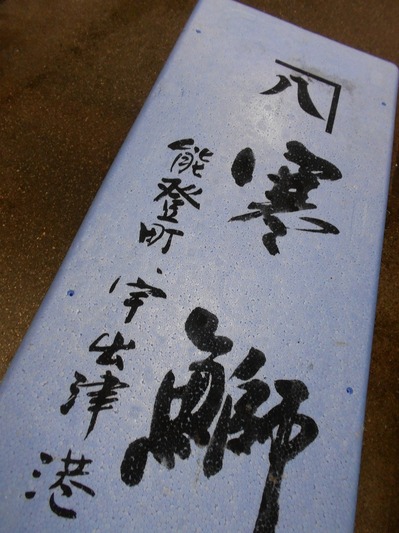 八
寒鰤
能登町・宇出津港